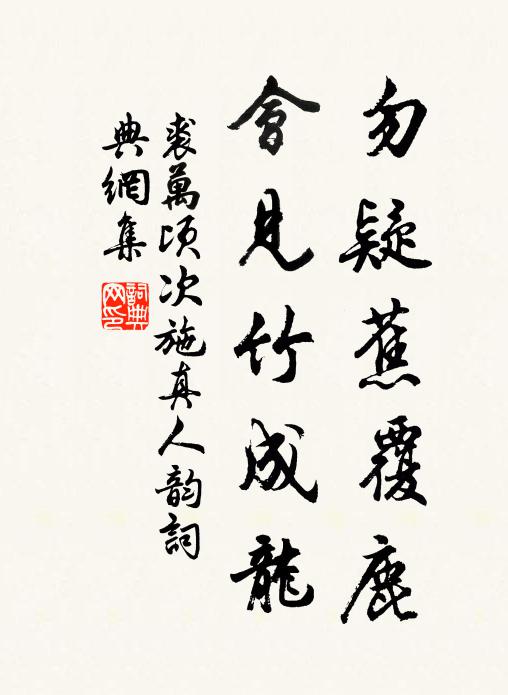 勿疑蕉覆鹿
會見竹成龍
裘萬頃次施真人韵詞
典網集
詞典
网印